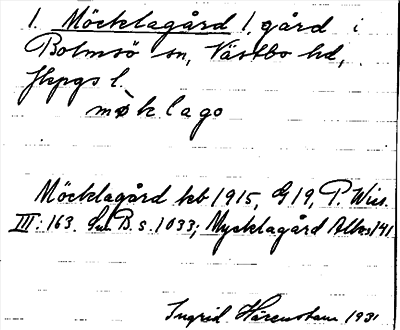 1. Möcklagård 1. gård i
Bolmsö sn, Västbo hd,
Jkpgs l.
mø̀klago
Möcklagård kb 1915, G19, P. Wies.
III: 163. B. s. 1033; Mycklagård Alb 141
Ingrid Härenstam 1931